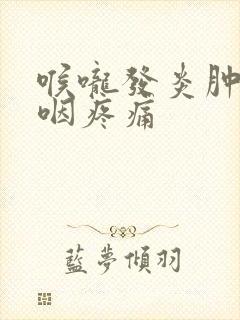 喉嚨發炎肿
咽疼痛
藍夢傾羽